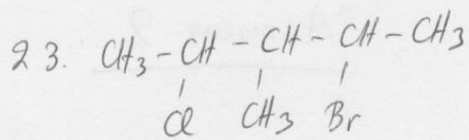 23. CH3 - CH - CH - CH - CH3
Cl CH3 Br